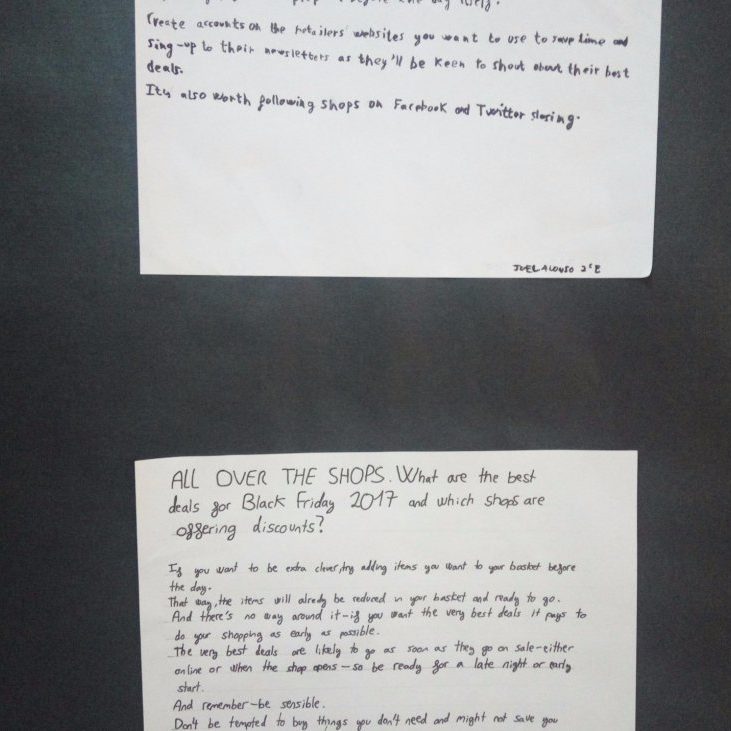 Create accounts on the retailers' websites you want to use to save time and
sing-up to their newsletters as they'll be keen to shout about their best
deals.
It's also worth following shops on Facebook and Twitter
JOEL ALONSO 2ºE
ALL OVER THE SHOPS. What are the best
deals for Black Friday 2017 and which shops are
offering discounts?
If you want to be extra clever, try adding items you want to your basket before
the day.
That way, the items will alredy be reduced in your basket and ready to go.
And there's no way around it-if you want the very best deals it pays to
do your shopping as early as possible.
The very best deals are likely to go as soon as they go on sale-either
online or when the shop opens-so be ready for a late night or early
start.
And remember-be sensible.
Don't be tempted to buy things you don't need and might not save you